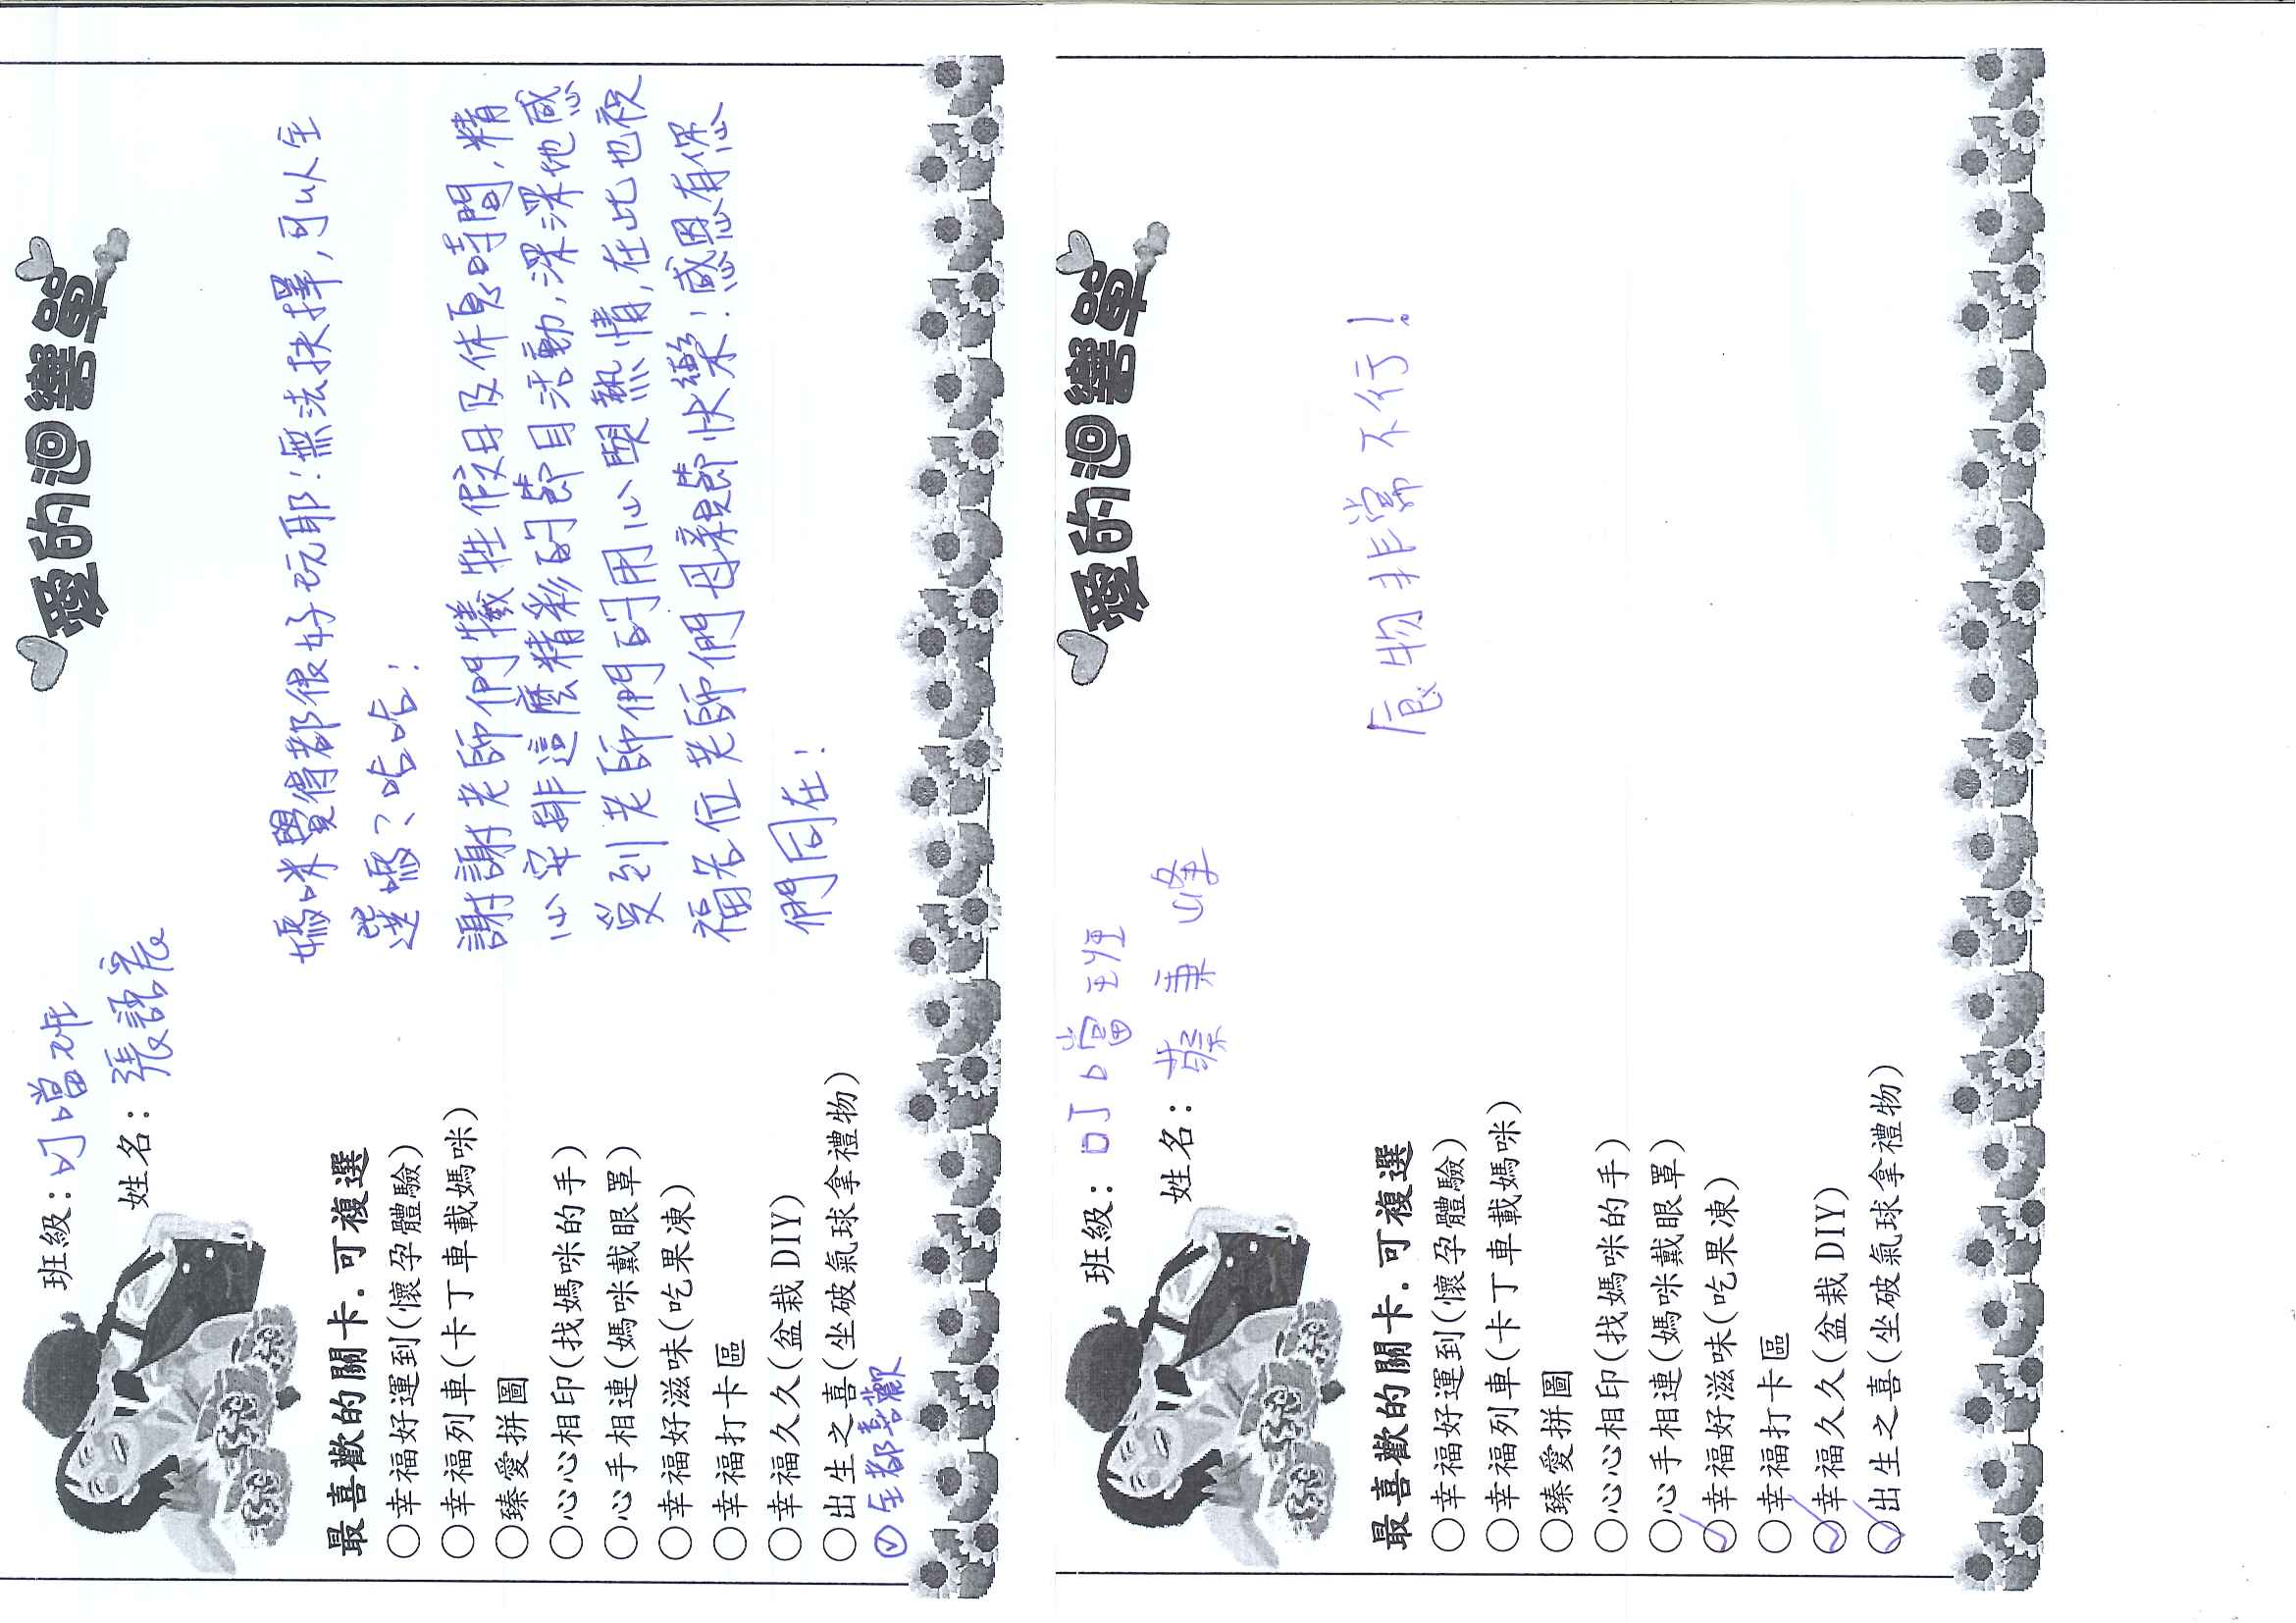 愛的迴響單
班級:叮噹班
姓名:張語宸
最喜歡的關卡.可複選
○幸福好運到(懷孕體驗)
○幸福列車(卡丁車載媽咪)
○臻愛拼圖
○心心相印(找媽咪的手)
○心手相連(媽咪戴眼罩)
○幸福好滋味(吃果凍)
○幸福打卡區
○幸福久久(盆栽DIY)
○出生之喜(坐破氣球拿禮物)
全都喜歡
媽咪覺得都很好玩耶!無法抉擇,可以全
選嗎?咕咕!
謝謝老師們犧牲假日及休息時間,精
心安排這麼精彩的節目活動,深深地感
受到老師們的用心與熱情,在此也祝
福各位老師們母親節快樂!感恩有您
們同在!
愛的迴響單
班級:叮噹班
姓名:蔡秉峰
最喜歡的關卡.可複選
○幸福好運到(懷孕體驗)
○幸福列車(卡丁車載媽咪)
○臻愛拼圖
○心心相印(找媽咪的手)
○心手相連(媽咪戴眼罩)
○幸福好滋味(吃果凍)
○幸福打卡區
○幸福久久(盆栽DIY)
○出生之喜(坐破氣球拿禮物)
物非常不行!